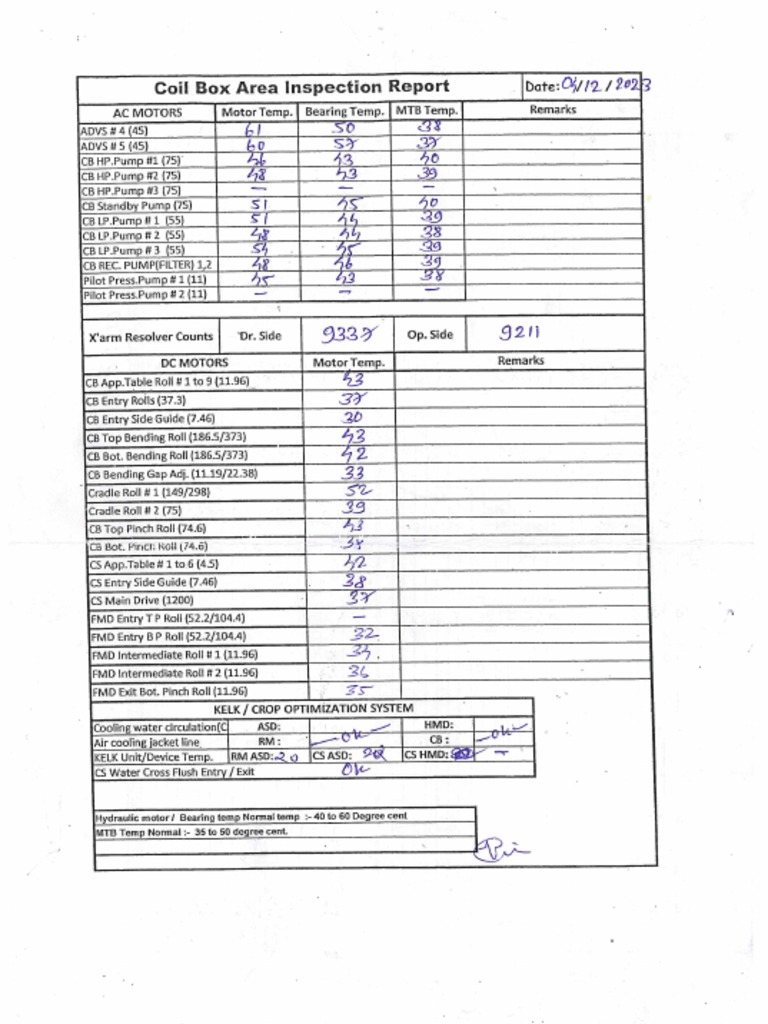 Coil Box Area Inspection Report Date: 04/12/2023
AC MOTORS Motor Temp. Bearing Temp. MTB Temp. Remarks
ADVS # 4 (45) 61 50 38
ADVS # 5 (45) 60 57 37
CB HP.Pump #1 (75) 46 43 40
CB HP.Pump #2 (75) 48 43 39
CB HP.Pump #3 (75) — — —
CB Standby Pump (75) 51 45 40
CB LP.Pump # 1 (55) 51 44 39
CB LP.Pump # 2 (55) 48 44 38
CB LP.Pump # 3 (55) 54 45 39
CB REC. PUMP(FILTER) 1,2 48 46 39
Pilot Press.Pump # 1 (11) 45 43 38
Pilot Press.Pump # 2 (11) — — —
X'arm Resolver Counts Dr. Side 9337 Op. Side 9211
DC MOTORS Motor Temp. Remarks
CB App.Table Roll # 1 to 9 (11.96) 43
CB Entry Rolls (37.3) 37
CB Entry Side Guide (7.46) 30
CB Top Bending Roll (186.5/373) 43
CB Bot. Bending Roll (186.5/373) 42
CB Bending Gap Adj. (11.19/22.38) 33
Cradle Roll # 1 (149/298) 52
Cradle Roll # 2 (75) 39
CB Top Pinch Roll (74.6) 43
CB Bot. Pinch Roll (74.6)
CS App.Table # 1 to 6 (4.5) 42
CS Entry Side Guide (7.46) 38
CS Main Drive (1200) 37
FMD Entry T P Roll (52.2/104.4) —
FMD Entry B P Roll (52.2/104.4) 32
FMD Intermediate Roll # 1 (11.96) 34
FMD Intermediate Roll # 2 (11.96) 36
FMD Exit Bot. Pinch Roll (11.96) 35
KELK / CROP OPTIMIZATION SYSTEM
Cooling water circulation(C ASD: HMD:
Air cooling jacket line RM : OK CB : OK
KELK Unit/Device Temp. RM ASD: 20 CS ASD: CS HMD: —
CS Water Cross Flush Entry / Exit OK
Hydraulic motor / Bearing temp Normal temp :- 40 to 60 Degree cent
MTB Temp Normal :- 35 to 50 degree cent.